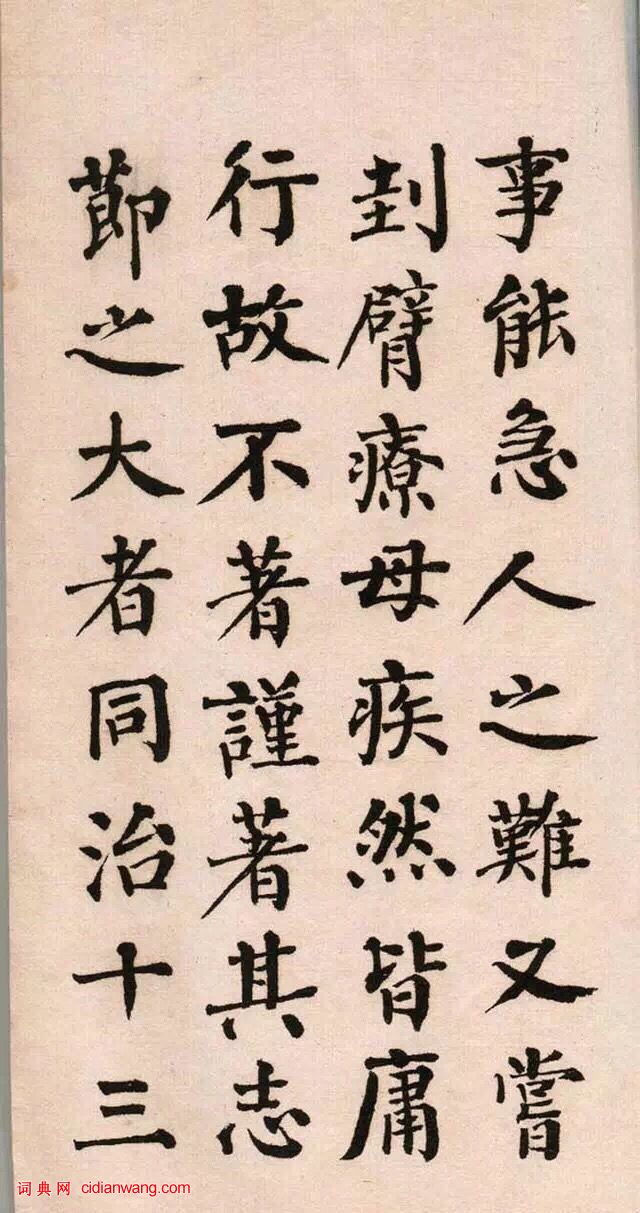 事能急人之難又嘗
刲臂療母疾然皆庸
行故不著謹著其志
節之大者同治十三
词典网 cidianwang.com